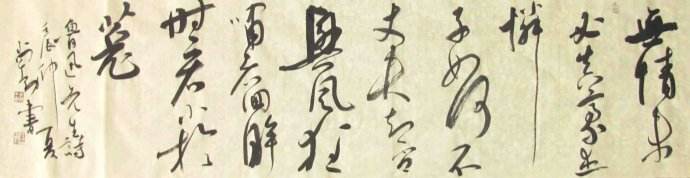 無情未
必真豪傑
憐
子如何不
丈夫知否
興風狂
嘯者回眸
時看小於
菟
魯迅先生詩
仲夏
書